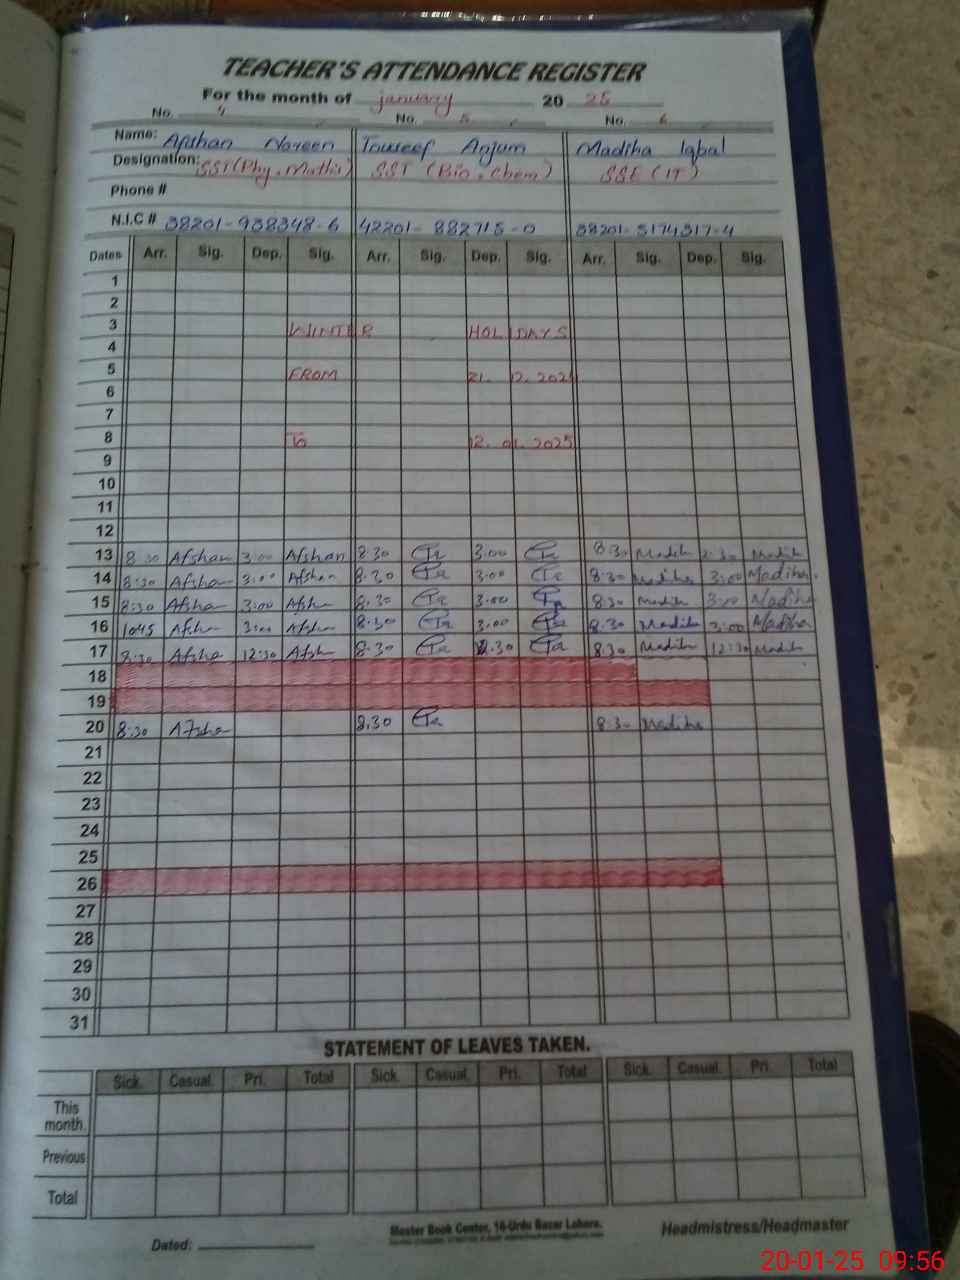 TEACHER'S ATTENDANCE REGISTER
For the month of january 20 25
No. 4 No. 5 No. 6
Name: Afshan Noreen Touseef Anjum Madiha Iqbal
Designation: SST (Phy, Maths) SST (Bio, Chem) SSE (IT)
Phone #
N.I.C # 38201-938348-6 42201-882715-0 38201-5174317-4
Dates Arr. Sig. Dep. Sig. Arr. Sig. Dep. Sig. Arr. Sig. Dep. Sig.
1
2
3 WINTER HOLIDAYS
4
5 FROM 21. 12. 202
6
7
8 To 12. 01. 2025
9
10
11
12
13 8 30 Afshan 3:00 Afshan 8.30 3.00 8:30 Madiha 3:30 Madiha
14 8:30 Afshan 3:00 Afshan 8.30 3.00 8:30 Madiha 3:00 Madiha
15 8:30 Afshan 3:00 Afshan 8.30 3.00 8:30 Madiha 3:00 Madiha
16 10:45 Afshan 3:00 Afshan 8.30 3.00 8.30 Madiha 3:00 Madiha
17 8:30 Afshan 12:30 Afshan 8.30 12.30 8:30 Madiha 12:30 Madiha
18
19
20 8:30 Afshan 8.30 8:30 Madiha
21
22
23
24
25
26
27
28
29
30
31
STATEMENT OF LEAVES TAKEN.
Sick. Casual. Pri. Total Sick. Casual. Pri. Total Sick. Casual. Pri. Total
This month.
Previous
Total
Dated: Master Book Center, 16-Urdu Bazar Lahore. Headmistress/Headmaster
20-01-25 09:56